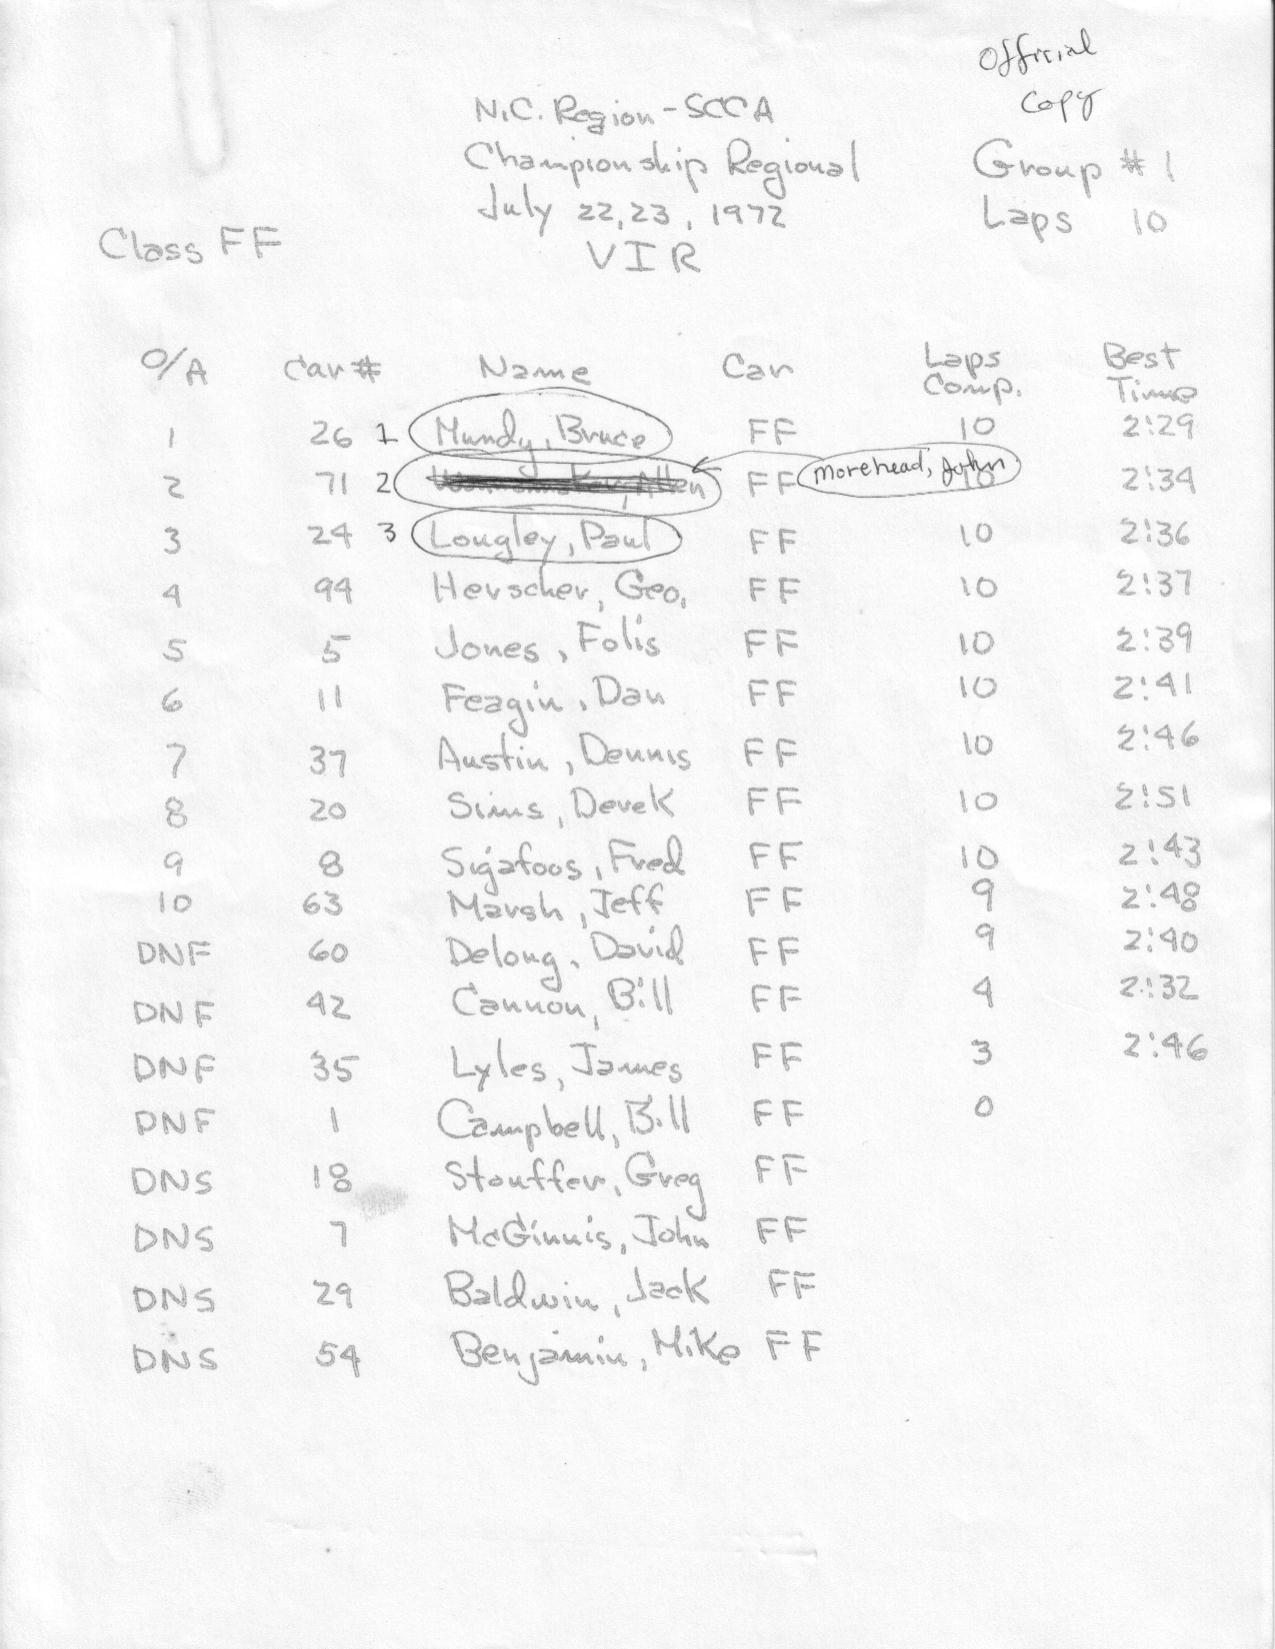 Official
Copy
N.C. Region - SCCA
Championship Regional
July 22,23, 1972
VIR
Group # 1
Laps 10
Class FF
O/A Car # Name Car Laps Comp. Best Time
1 26 1 Mundy, Bruce FF 10 2:29
2 71 2 Allen FF morehead, John 10 2:34
3 24 3 Longley, Paul FF 10 2:36
4 94 Herscher, Geo. FF 10 2:37
5 5 Jones, Folis FF 10 2:39
6 11 Feagin, Dan FF 10 2:41
7 37 Austin, Dennis FF 10 2:46
8 20 Sims, Derek FF 10 2:51
9 8 Sigafoos, Fred FF 10 2:43
10 63 Marsh, Jeff FF 9 2:48
DNF 60 Delong, David FF 9 2:40
DNF 42 Cannon, Bill FF 4 2:32
DNF 35 Lyles, James FF 3 2:46
DNF 1 Campbell, Bill FF 0
DNS 18 Stouffer, Greg FF
DNS 7 McGinnis, John FF
DNS 29 Baldwin, Jack FF
DNS 54 Benjamin, Mike FF